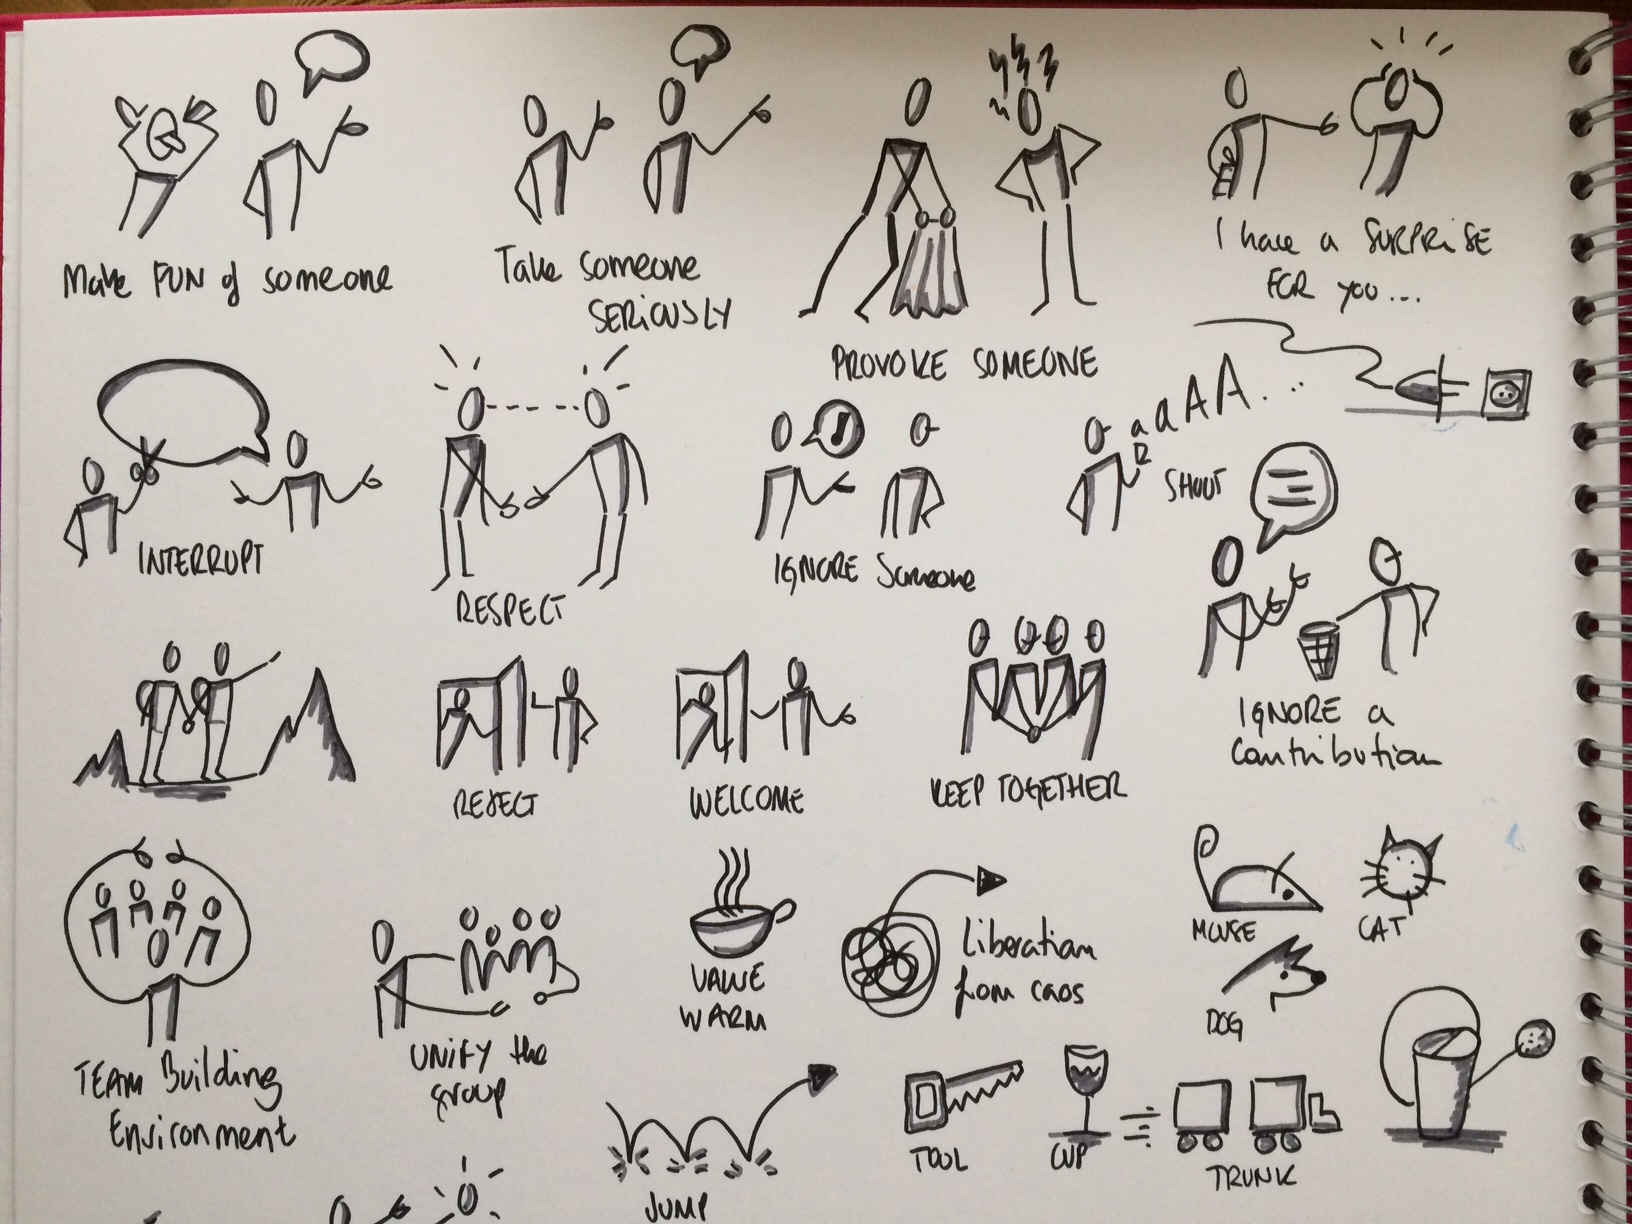 Make FUN of someone
Take someone
SERIOUSLY
PROVOKE SOMEONE
I have a SURPRISE
FOR you...
INTERRUPT
RESPECT
IGNORE Someone
a a A A...
SHOUT
REJECT
WELCOME
KEEP TOGETHER
IGNORE a
contribution
TEAM Building
Environment
UNIFY the
group
VALUE
WARM
Liberation
from caos
MOUSE
CAT
DOG
JUMP
TOOL
CUP
TRUNK